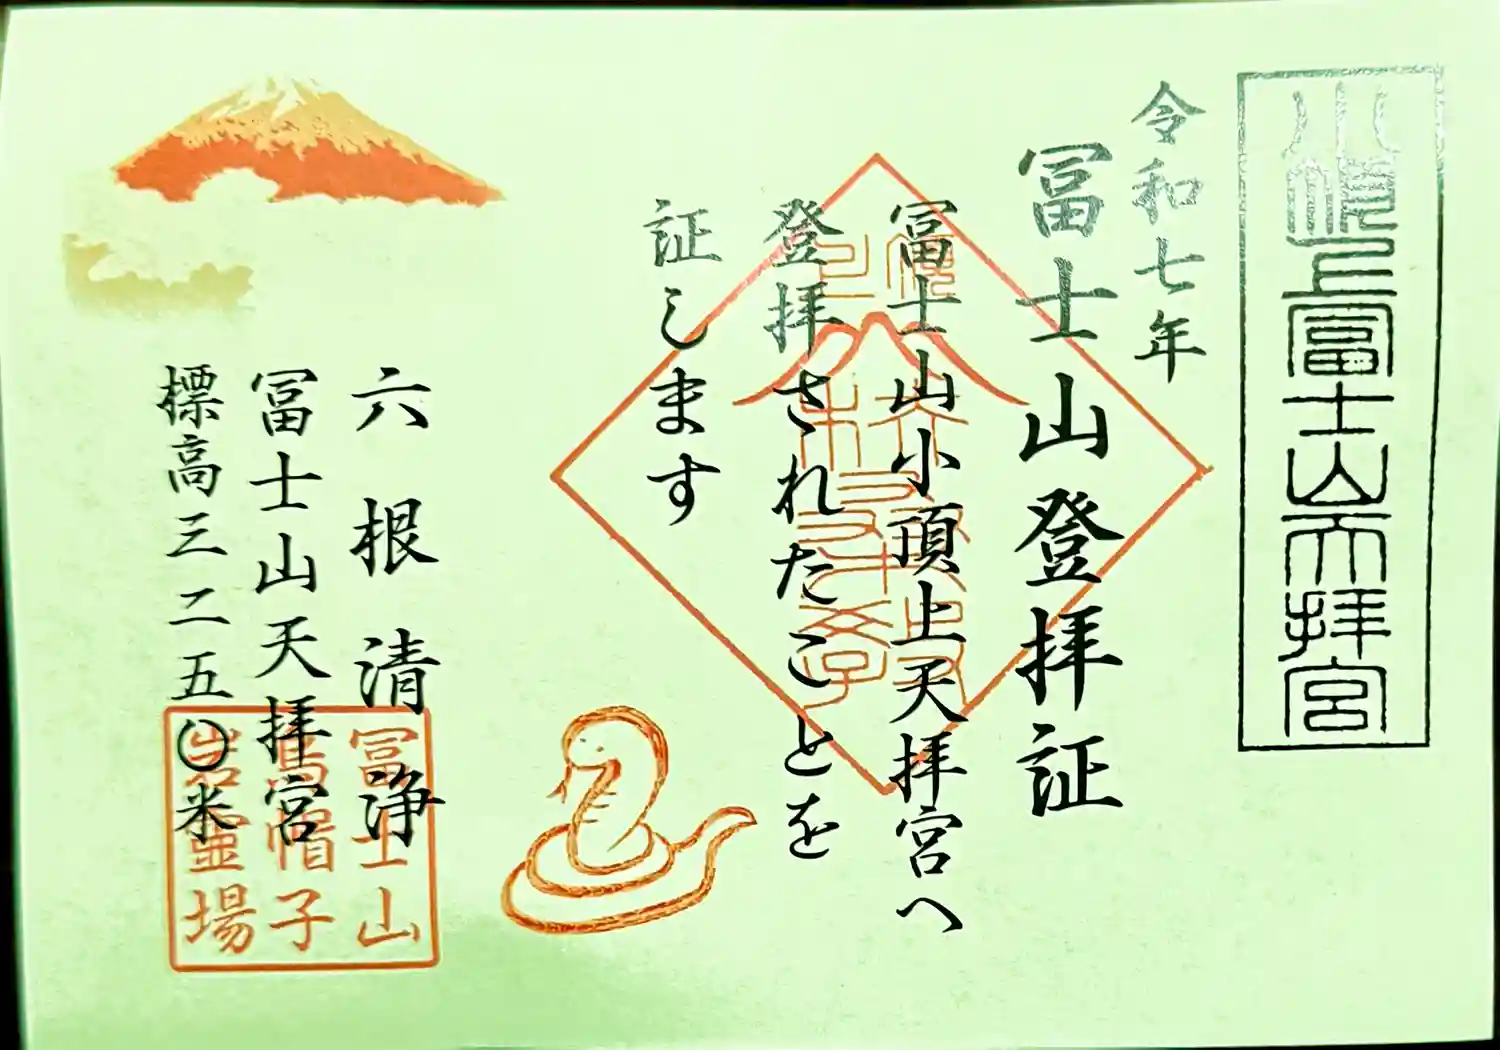 小頂上富士山天拝宮
令和七年
冨士山登拝証
冨士山小頂上天拝宮へ
登拝されたことを
証します
六根清浄
冨士山天拝宮
標高三二五〇米
冨士山
烏帽子
岩霊場